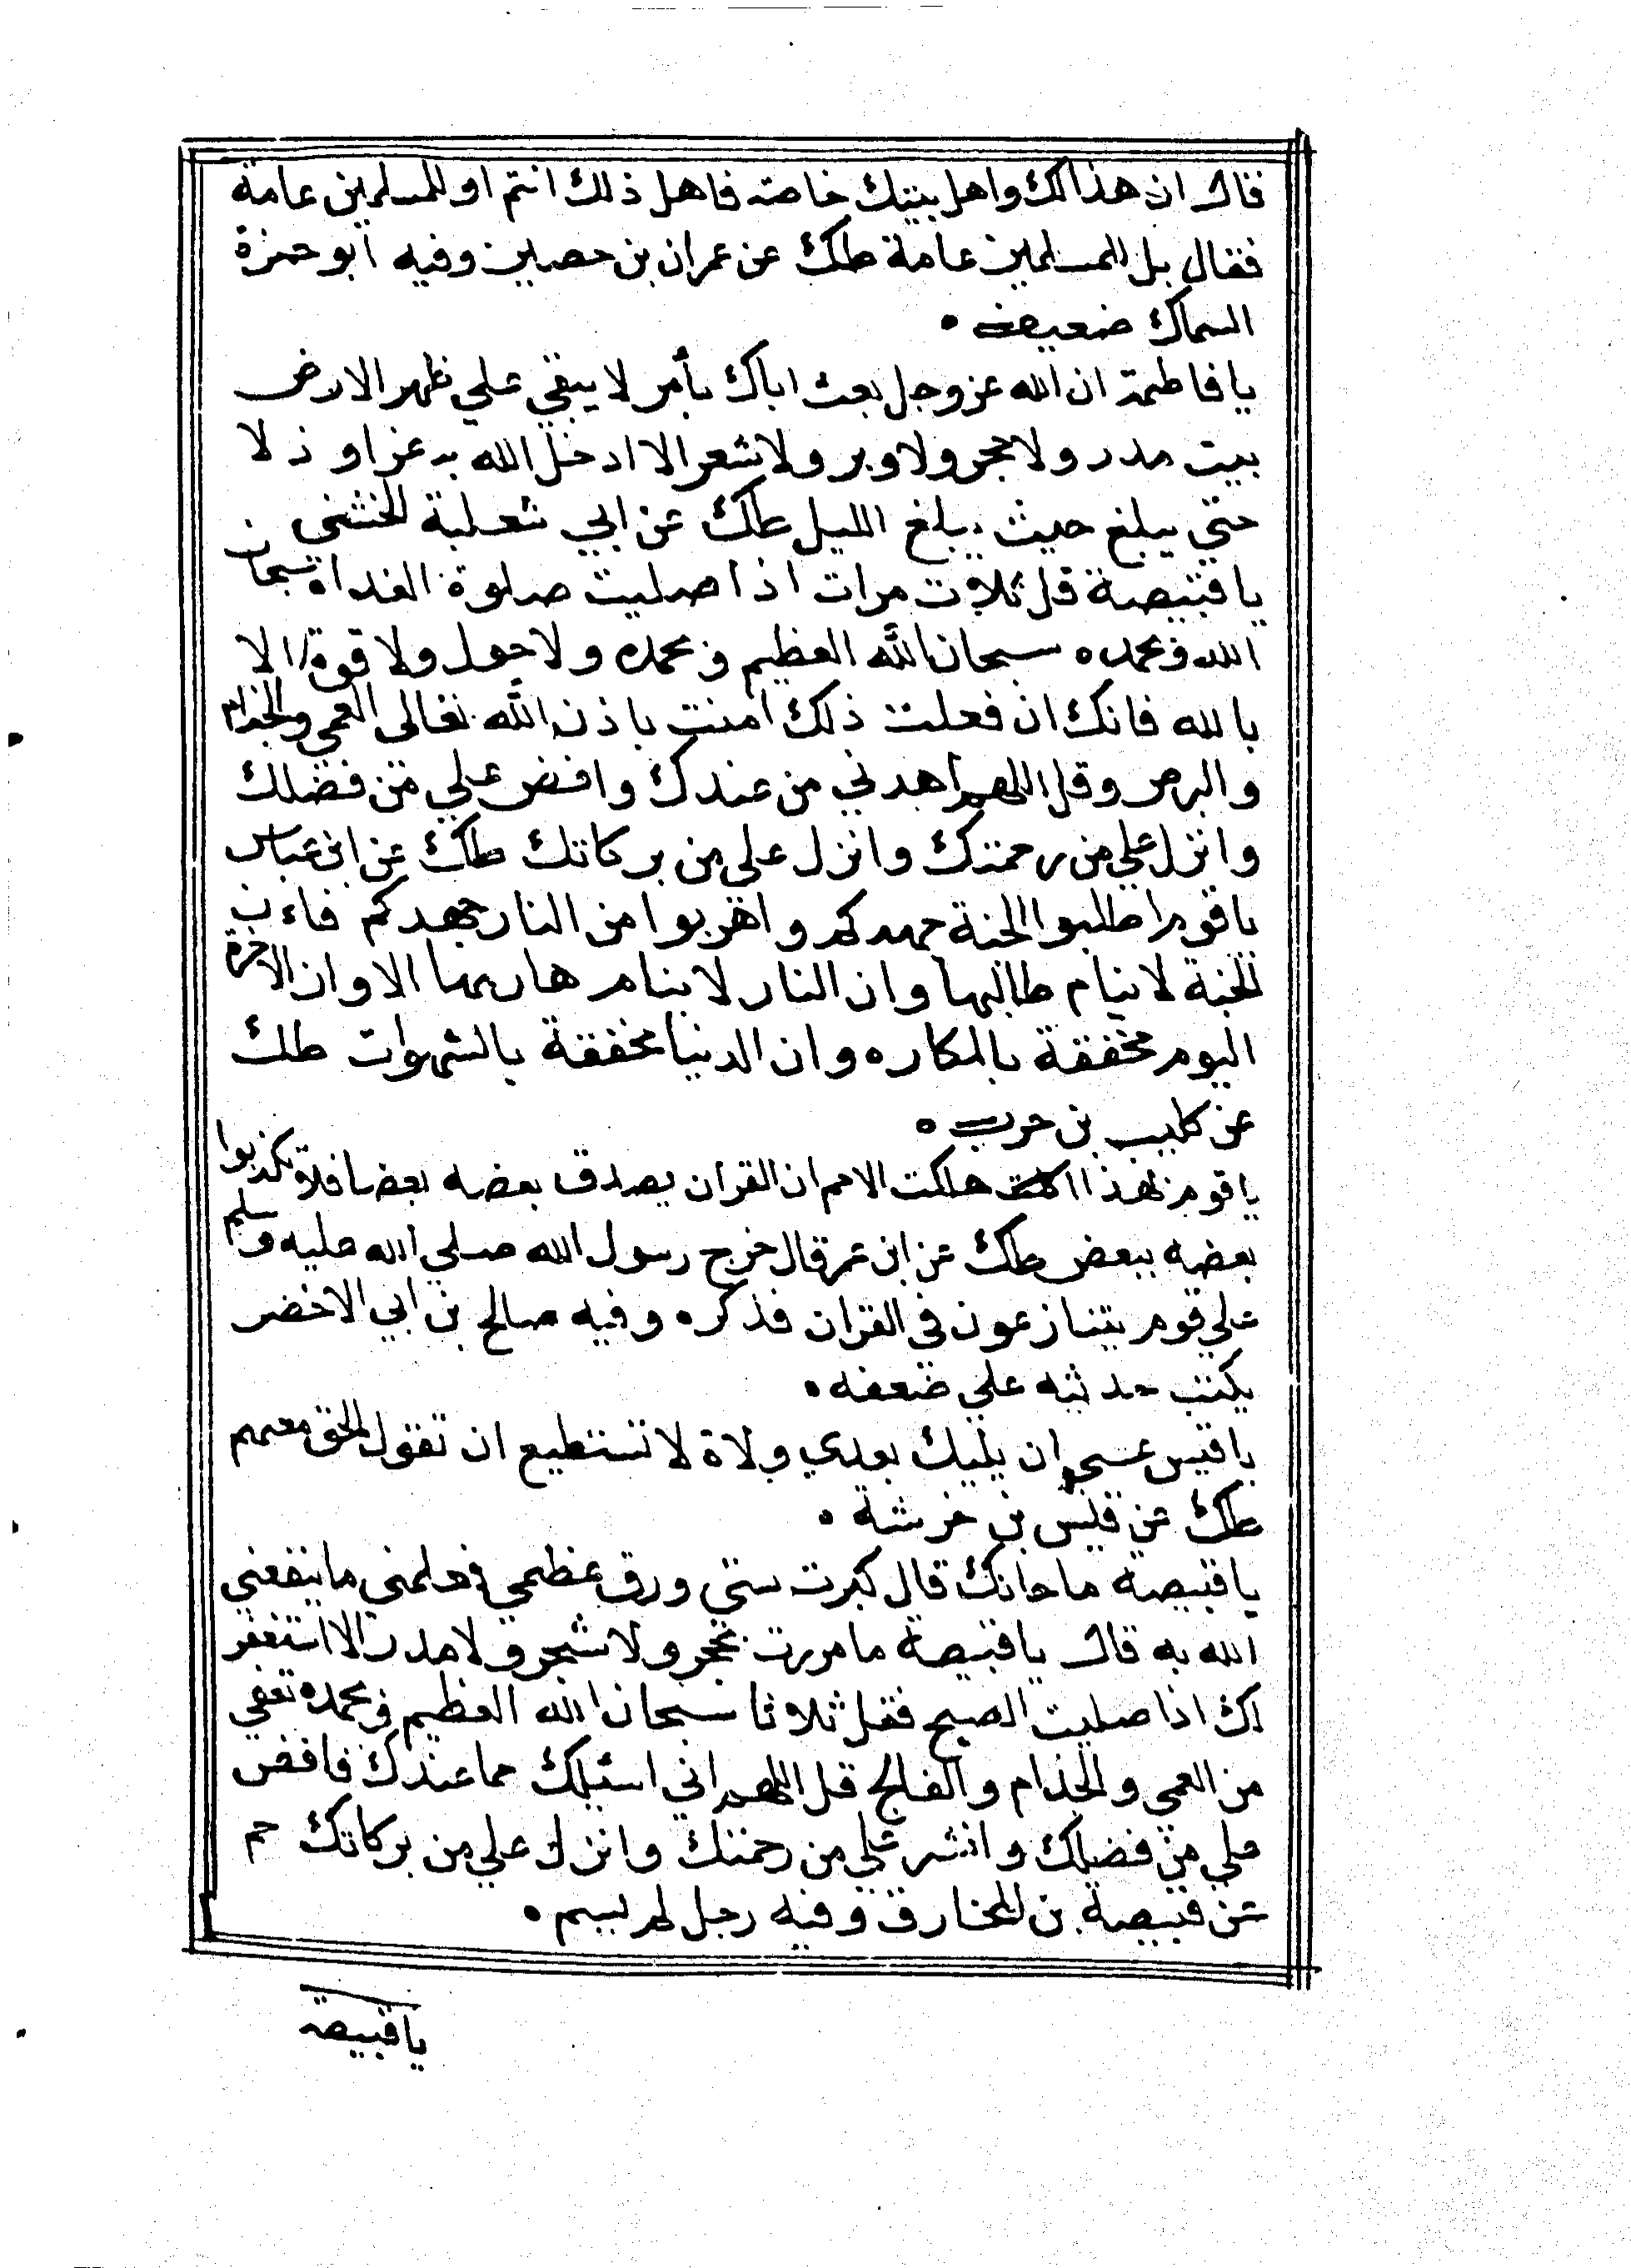 قال ان هذا لك واهل بيتك خاصة فاهل ذلك انتم او للمسلمين عامة
فقال بل للمسلمين عامة طك عن عمران بن حصين وفيه ابو حمزة
السماك ضعيف ٠
يا فاطمة ان الله عز وجل بعث اباك بأمر لا يبقي علي ظهر الارض
بيت مدر ولا حجر ولا وبر ولا شعر الا ادخل الله به عزا و ذلا
حتي يبلغ حيث يبلغ الليل طك عن ابي ثعلبة الخشني
يا قبيصة قل ثلاث مرات اذا صليت صلوة الغداة سبحان
الله وبحمده سبحان الله العظيم وبحمده ولا حول ولا قوة الا
بالله فانك ان فعلت ذلك امنت باذن الله تعالى العمي والجذام
والبرص وقل اللهم اهدني من عندك وافض علي من فضلك
وانزل علي من رحمتك وانزل علي من بركاتك طك عن ابن عباس
يا قوم اطلبوا الجنة جهدكم واهربوا من النار جهدكم فان
الجنة لا ينام طالبها وان النار لا ينام هاربها الا وان الاخرة
اليوم محففة بالمكاره وان الدنيا محففة بالشهوات طك
عن كليب بن حرب ٠
يا قوم بهذا هلكت الامم ان القران يصدق بعضه بعضا فلا تكذبوا
بعضه ببعض طك عن ابن عمر قال خرج رسول الله صلي الله عليه وسلم
علي قوم يتنازعون في القران فذكره وفيه صالح بن ابي الاخضر
يكتب حديثه علي ضعفه ٠
يا قيس عسي ان يليك بعدي ولاة لا تستطيع ان تقول الحق معهم
طك عن قيس بن خرشة ٠
يا قبيصة ما جاء بك قال كبرت سني ورق عظمي فعلمني ما ينفعني
الله به قال يا قبيصة ما مررت بحجر ولا شجر ولا مدر الا استغفر
لك اذا صليت الصبح فقل ثلاثا سبحان الله العظيم وبحمده تعفي
من العمي والجذام والفالج قل اللهم اني اسئلك مما عندك فافض
علي من فضلك وانشر علي من رحمتك وانزل علي من بركاتك حم
عن قبيصة بن المخارق وفيه رجل لم يسم ٠
يا قبيصة